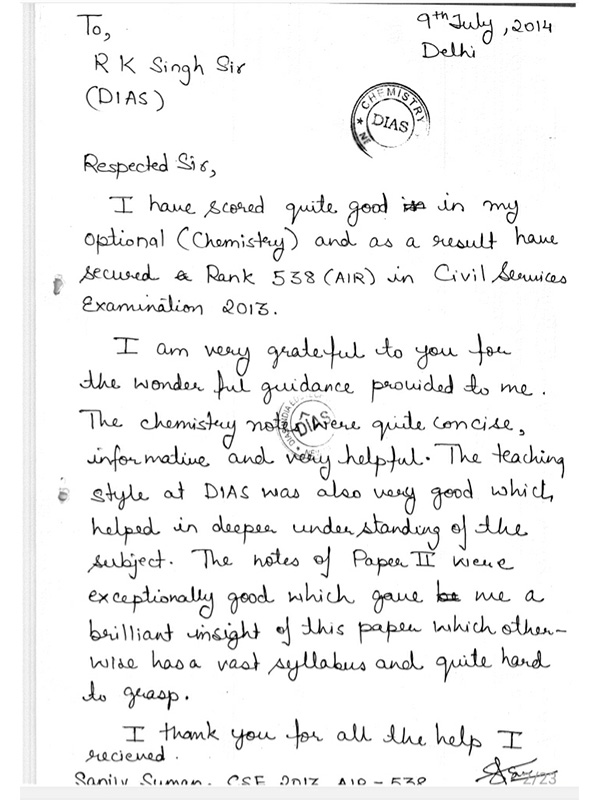 9th July, 2014
Delhi
To,
R K Singh Sir
(DIAS)
CHEMISTRY
DIAS
Respected Sir,
I have scored quite good in in my
optional (Chemistry) and as a result have
secured a Rank 538 (AIR) in Civil Services
Examination 2013.
I am very grateful to you for
the wonderful guidance provided to me.
The chemistry notes were quite concise,
DIAS
informative and very helpful. The teaching
style at DIAS was also very good which
helped in deeper understanding of the
subject. The notes of Paper II were
exceptionally good which gave me a
brilliant insight of this paper which other-
wise has a vast syllabus and quite hard
to grasp.
I thank you for all the help I
recieved.
Suman. CSE 2013 AIR - 538
2/23